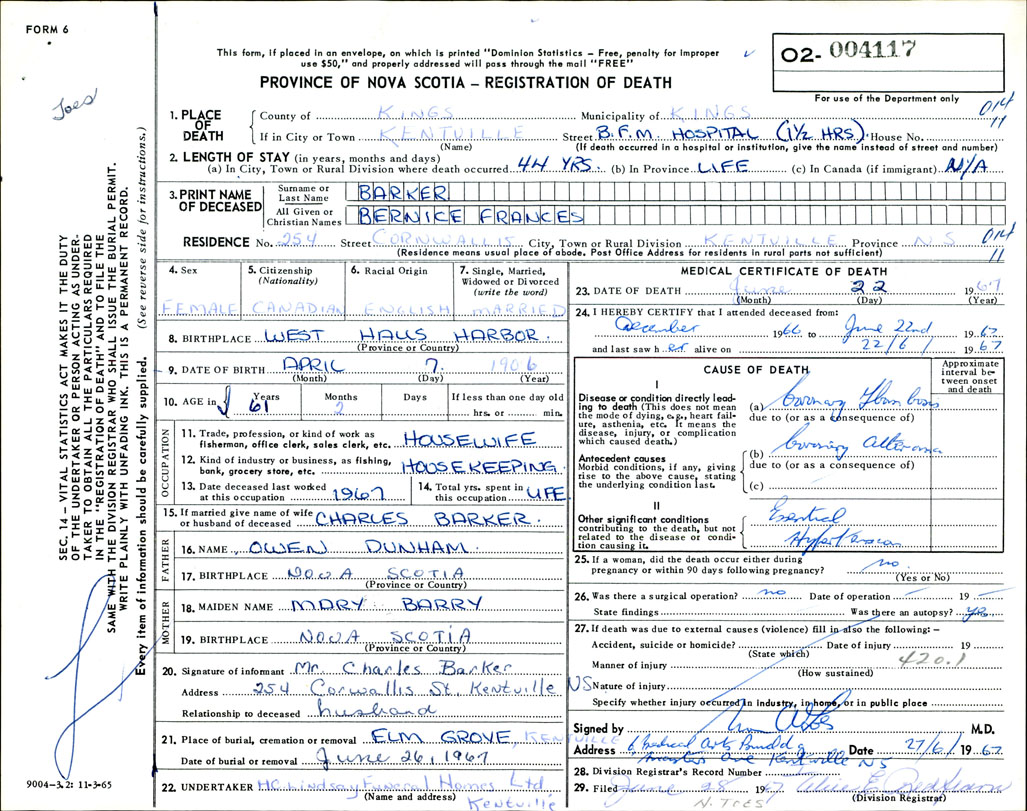 FORM 6
This form, if placed in an envelope, on which is printed "Dominion Statistics – Free, penalty for improper
use $50," and properly addressed will pass through the mail "FREE"
O2- 004117
PROVINCE OF NOVA SCOTIA – REGISTRATION OF DEATH
For use of the Department only
014
11
1. PLACE OF DEATH
County of KINGS Municipality of KINGS
If in City or Town KENTVILLE Street B.F.M. HOSPITAL (1½ HRS). House No.
(Name) (If death occurred in a hospital or institution, give the name instead of street and number)
2. LENGTH OF STAY (in years, months and days)
(a) In City, Town or Rural Division where death occurred 44 YRS. (b) In Province LIFE (c) In Canada (if immigrant) N/A
3. PRINT NAME OF DECEASED
Surname or Last Name BARKER
All Given or Christian Names BERNICE FRANCES
RESIDENCE No. 254 Street CORNWALLIS City, Town or Rural Division KENTVILLE Province NS
(Residence means usual place of abode. Post Office Address for residents in rural parts not sufficient)
014
11
4. Sex
FEMALE
5. Citizenship (Nationality)
CANADIAN
6. Racial Origin
ENGLISH
7. Single, Married, Widowed or Divorced (write the word)
MARRIED
8. BIRTHPLACE WEST HALLS HARBOR
(Province or Country)
9. DATE OF BIRTH APRIL 7. 1906
(Month) (Day) (Year)
10. AGE in Years Months Days If less than one day old
61 2 hrs. or min.
OCCUPATION
11. Trade, profession, or kind of work as fisherman, office clerk, sales clerk, etc. HOUSEWIFE
12. Kind of industry or business, as fishing, bank, grocery store, etc. HOUSEKEEPING
13. Date deceased last worked at this occupation 1967
14. Total yrs. spent in this occupation LIFE
15. If married give name of wife or husband of deceased CHARLES BARKER.
FATHER
16. NAME OWEN DUNHAM.
17. BIRTHPLACE NOVA SCOTIA
(Province or Country)
MOTHER
18. MAIDEN NAME MARY BARRY
19. BIRTHPLACE NOVA SCOTIA
(Province or Country)
20. Signature of informant Mr. Charles Barker
Address 254 Corwallis St. Kentville NS
Relationship to deceased husband
21. Place of burial, cremation or removal ELM GROVE, KENTVILLE
Date of burial or removal June 26, 1967
22. UNDERTAKER H.C. Lindsay Funeral Homes Ltd
(Name and address) Kentville
MEDICAL CERTIFICATE OF DEATH
23. DATE OF DEATH June 22 1967
(Month) (Day) (Year)
24. I HEREBY CERTIFY that I attended deceased from:
December 1966 to June 22nd 1967
and last saw her alive on 22/6/ 1967
CAUSE OF DEATH
Approximate interval between onset and death
I
Disease or condition directly leading to death (This does not mean the mode of dying, e.g., heart failure, asthenia, etc. It means the disease, injury, or complication which caused death.)
(a)
due to (or as a consequence of)
Antecedent causes
Morbid conditions, if any, giving rise to the above cause, stating the underlying condition last.
(b)
due to (or as a consequence of)
(c)
II
Other significant conditions contributing to the death, but not related to the disease or condition causing it.
Essential
Hypertension
25. If a woman, did the death occur either during pregnancy or within 90 days following pregnancy? no.
(Yes or No)
26. Was there a surgical operation? no Date of operation – 19 –
State findings Was there an autopsy? yes
27. If death was due to external causes (violence) fill in also the following: –
Accident, suicide or homicide? Date of injury 19
(State which)
Manner of injury 420.1
(How sustained)
Nature of injury
Specify whether injury occurred in industry, in home, or in public place
Signed by M.D.
Address Medical Arts Kentville NS Date 27/6/ 1967
28. Division Registrar's Record Number
29. Filed June 28 1967
(Division Registrar)
SEC. 14 – VITAL STATISTICS ACT MAKES IT THE DUTY
OF THE UNDERTAKER OR PERSON ACTING AS UNDER-
TAKER TO OBTAIN ALL THE PARTICULARS REQUIRED
IN THE "REGISTRATION OF DEATH" AND TO FILE THE
SAME WITH THE DIVISION REGISTRAR WHO SHALL ISSUE THE BURIAL PERMIT.
WRITE PLAINLY WITH UNFADING INK. THIS IS A PERMANENT RECORD.
Every item of information should be carefully supplied. (See reverse side for instructions.)
9004-3.2: 11-3-65